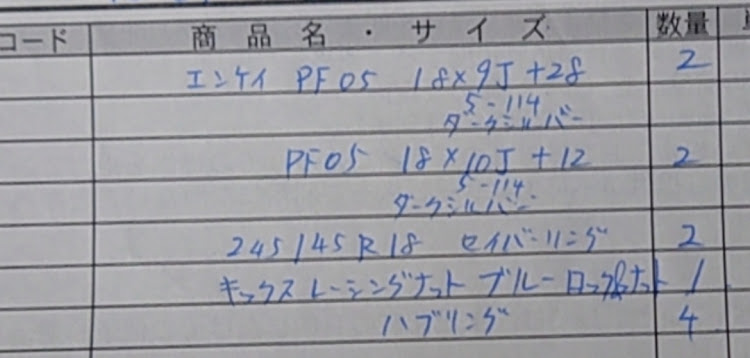 コード 商品名・サイズ 数量
エンケイ PF05 18×9J +28 2
5-114
ダークシルバー
PF05 18×10J +12 2
5-114
ダークシルバー
245/45R18 セイバーリング 2
キックスレーシングナット ブルー ロック&ナット 1
ハブリング 4